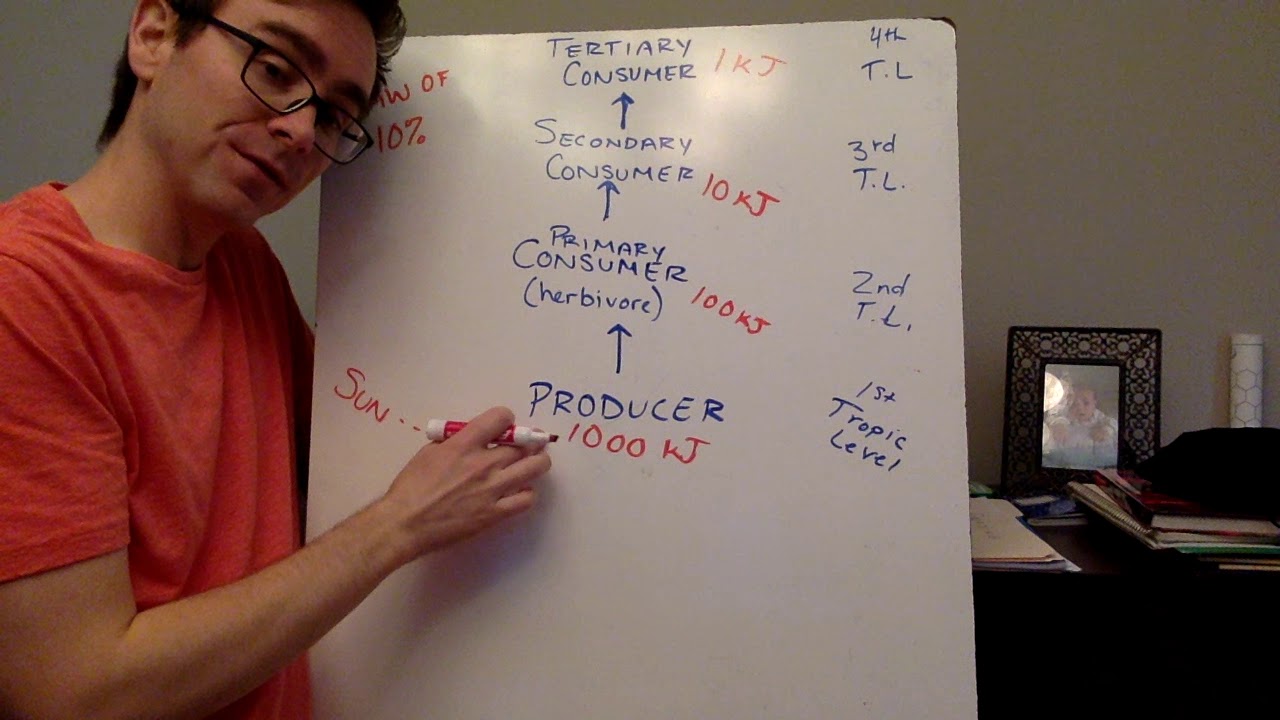 OF
10%
TERTIARY
CONSUMER 1 KJ
4th
T.L
SECONDARY
CONSUMER 10 KJ
3rd
T.L.
PRIMARY
CONSUMER
(herbivore) 100 KJ
2nd
T.L.
SUN...
PRODUCER
1000 KJ
1st
Tropic
Level